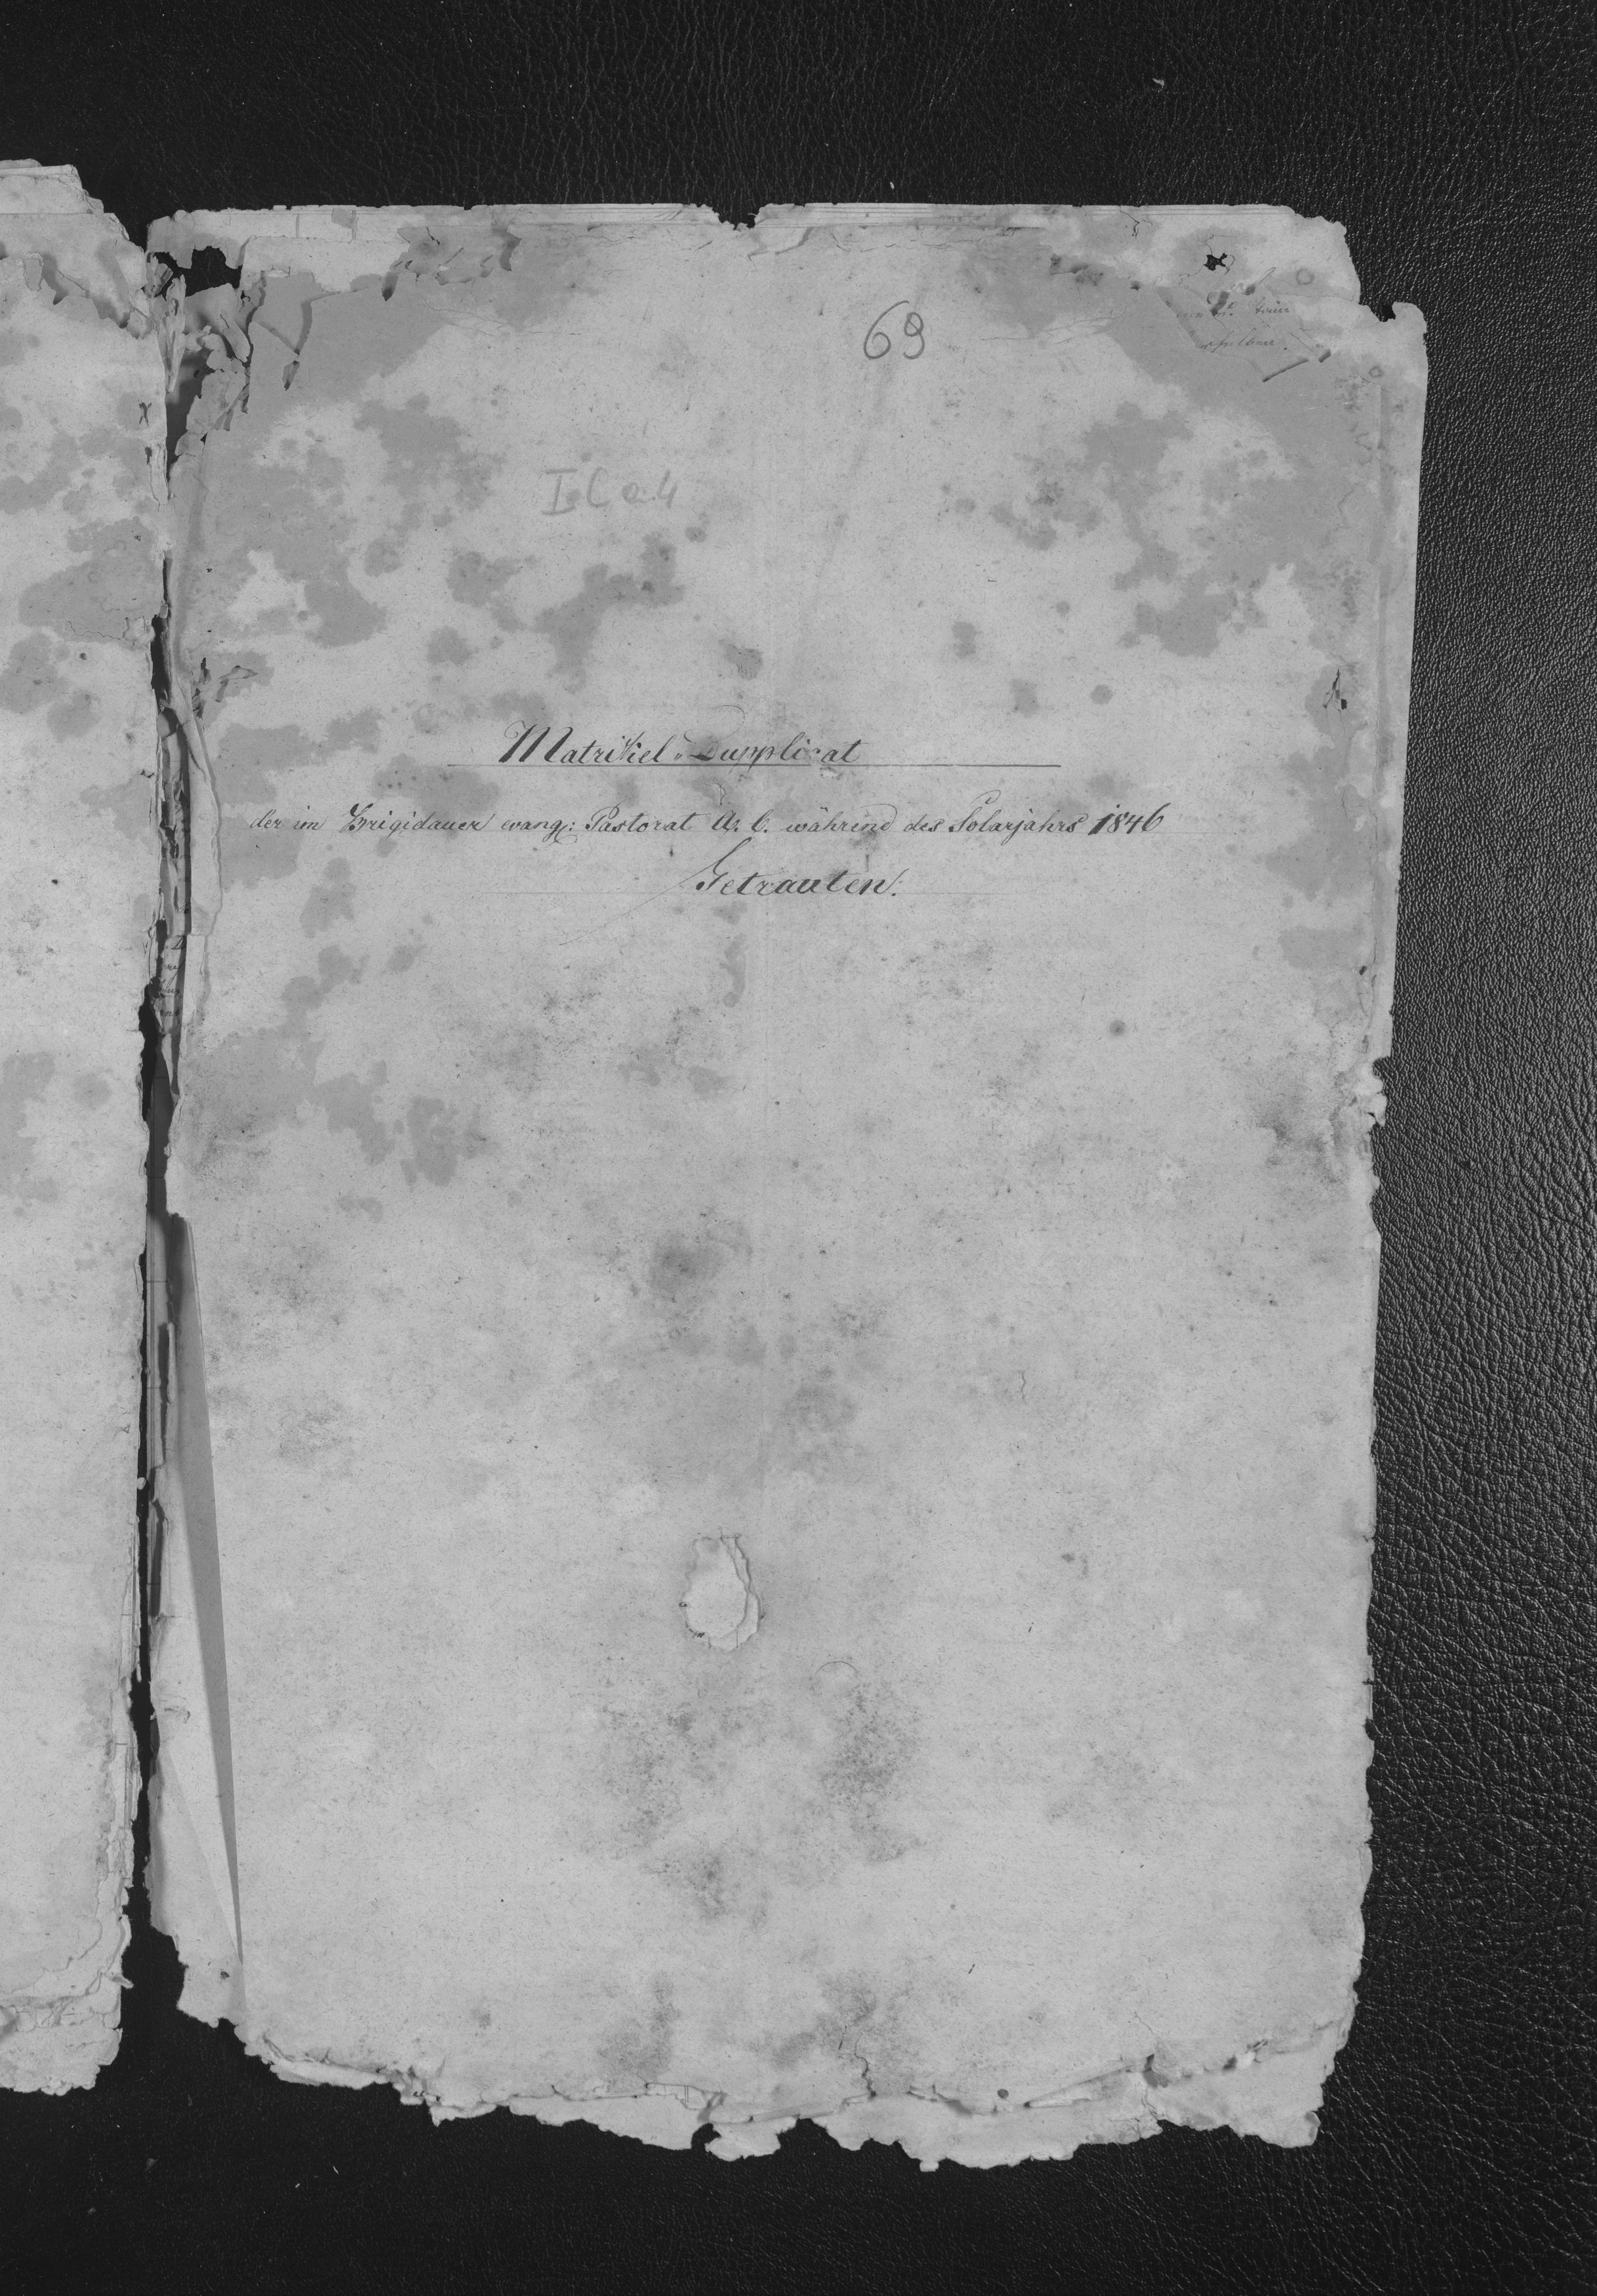 69
I C a. 4
Matrikel-Dupplicat
der im Brigidauer evang: Pastorat A. C. während des Solarjahrs 1846
Getrauten.